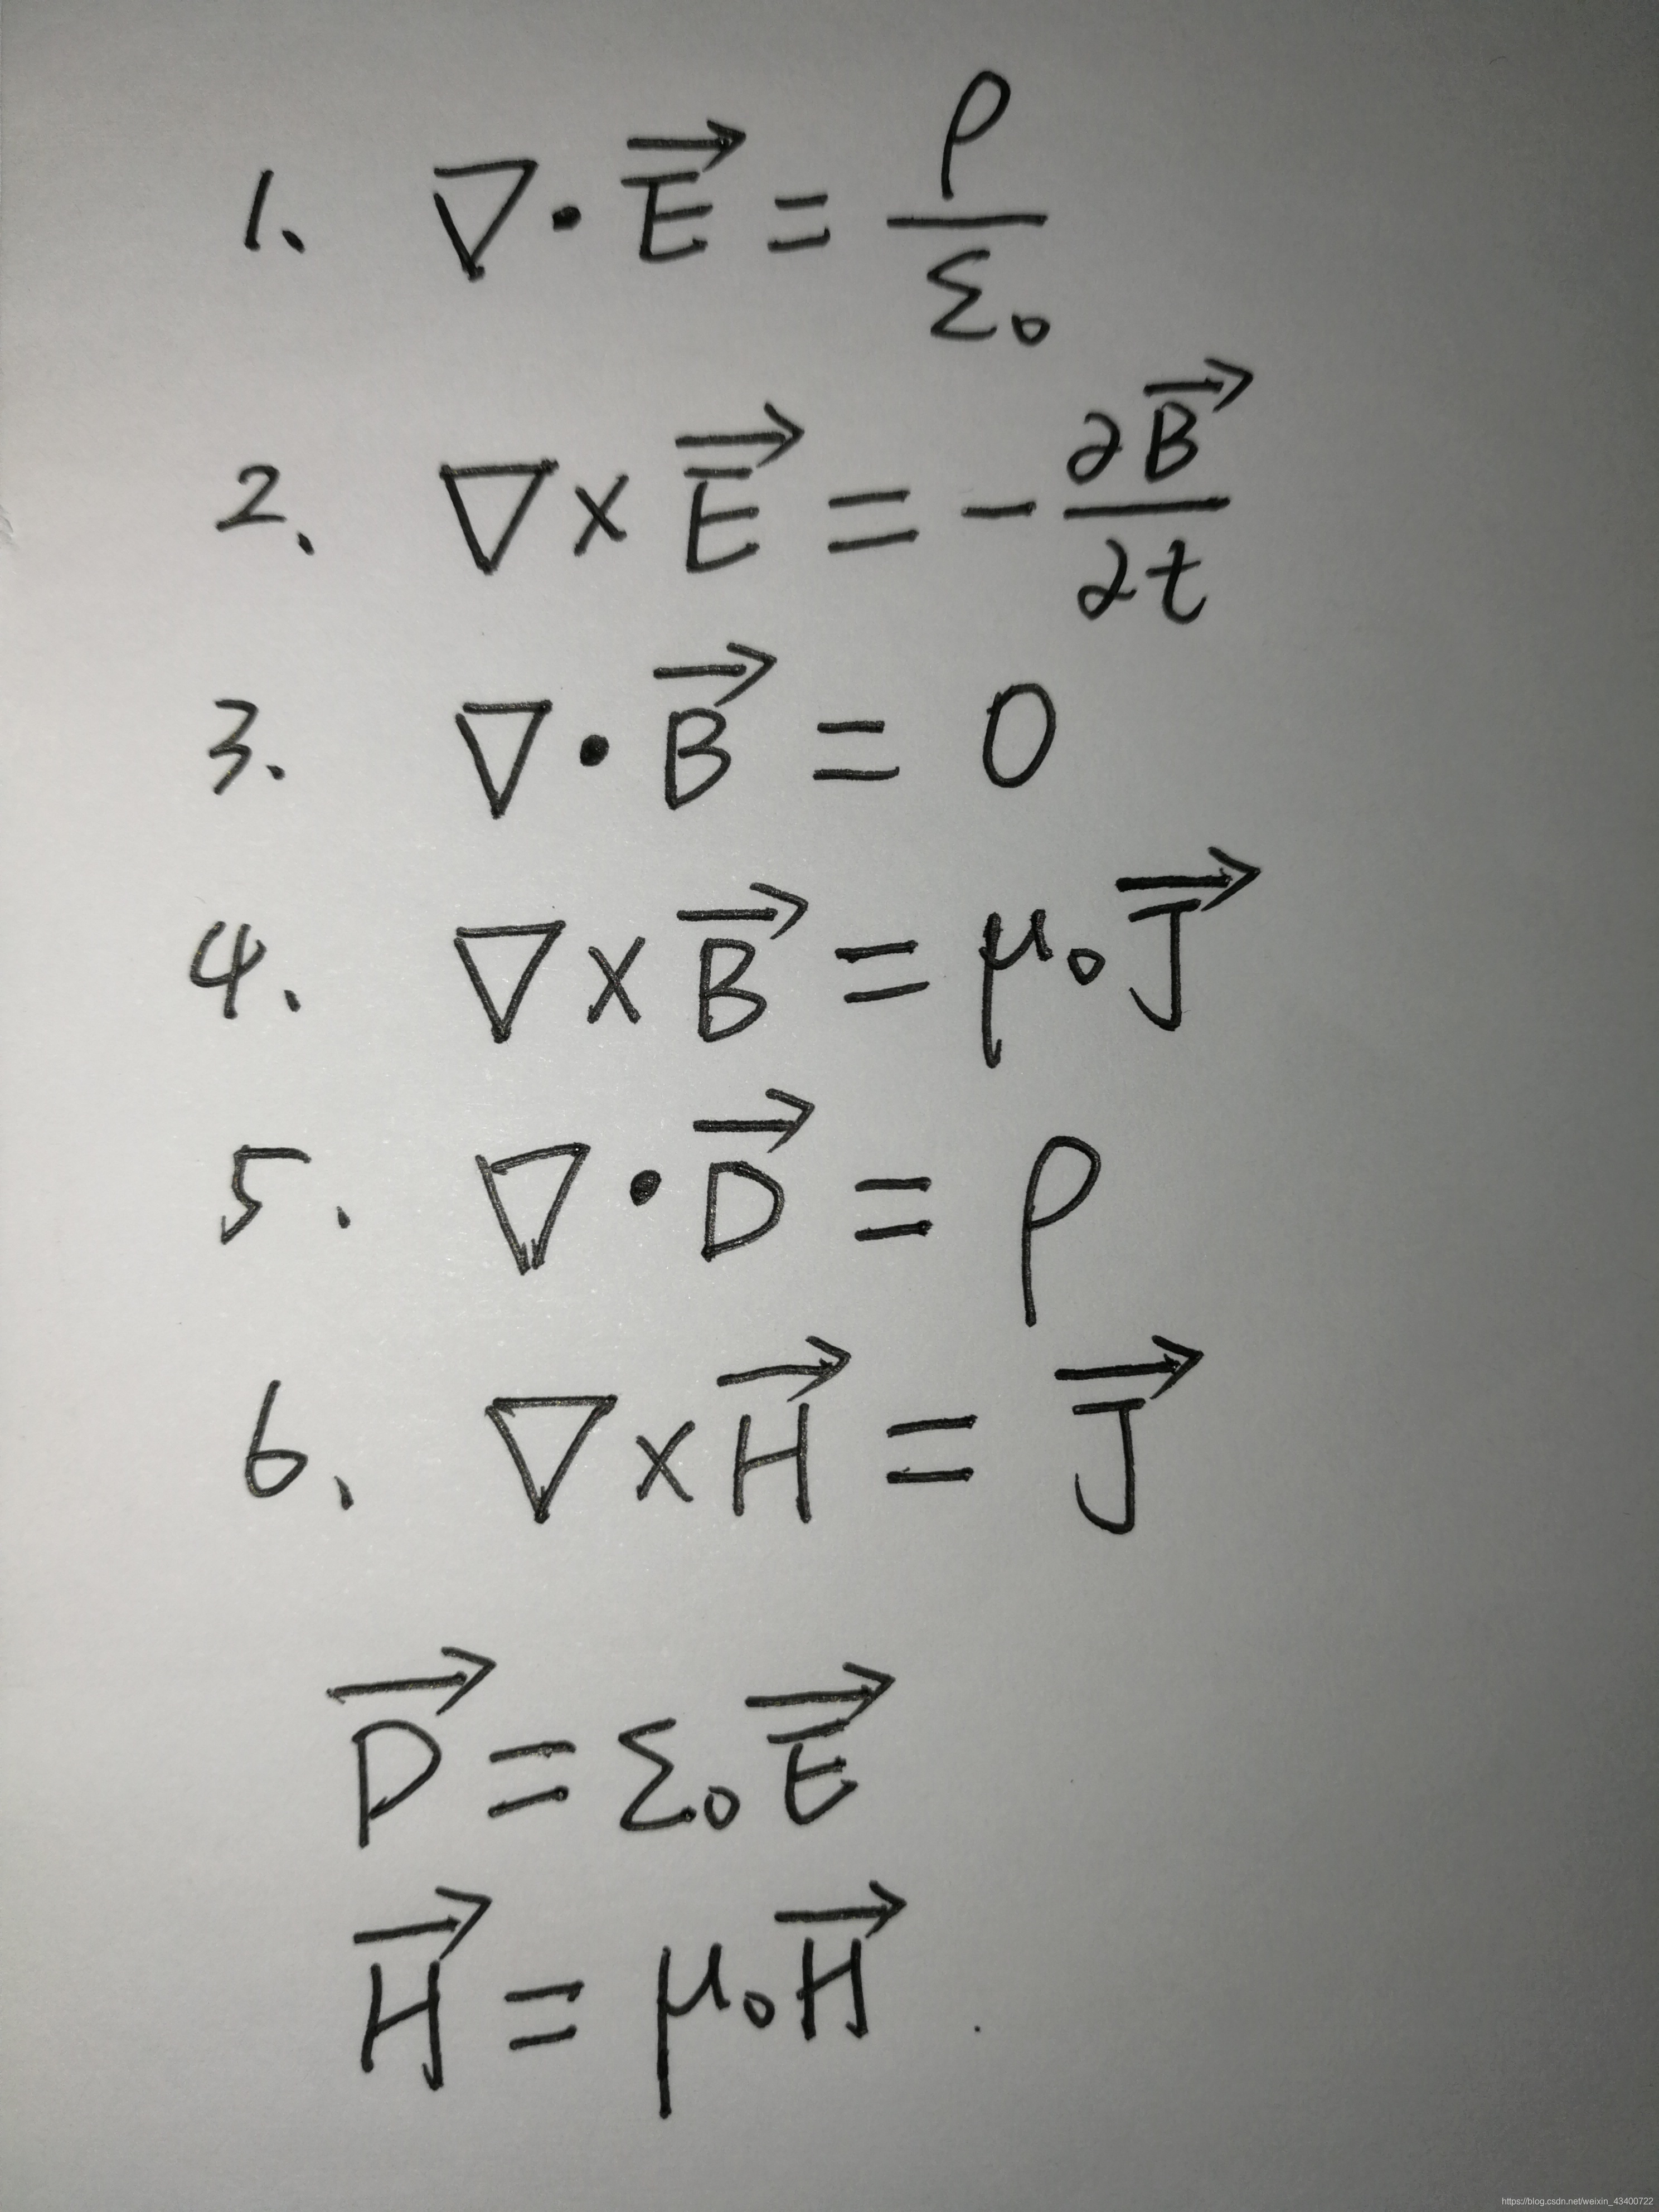 1. ∇·E⃗ = ρ/ε₀
2. ∇×E⃗ = -∂B⃗/∂t
3. ∇·B⃗ = 0
4. ∇×B⃗ = μ₀J⃗
5. ∇·D⃗ = ρ
6. ∇×H⃗ = J⃗
D⃗ = ε₀E⃗
H⃗ = μ₀H⃗
https://blog.csdn.net/weixin_43400722